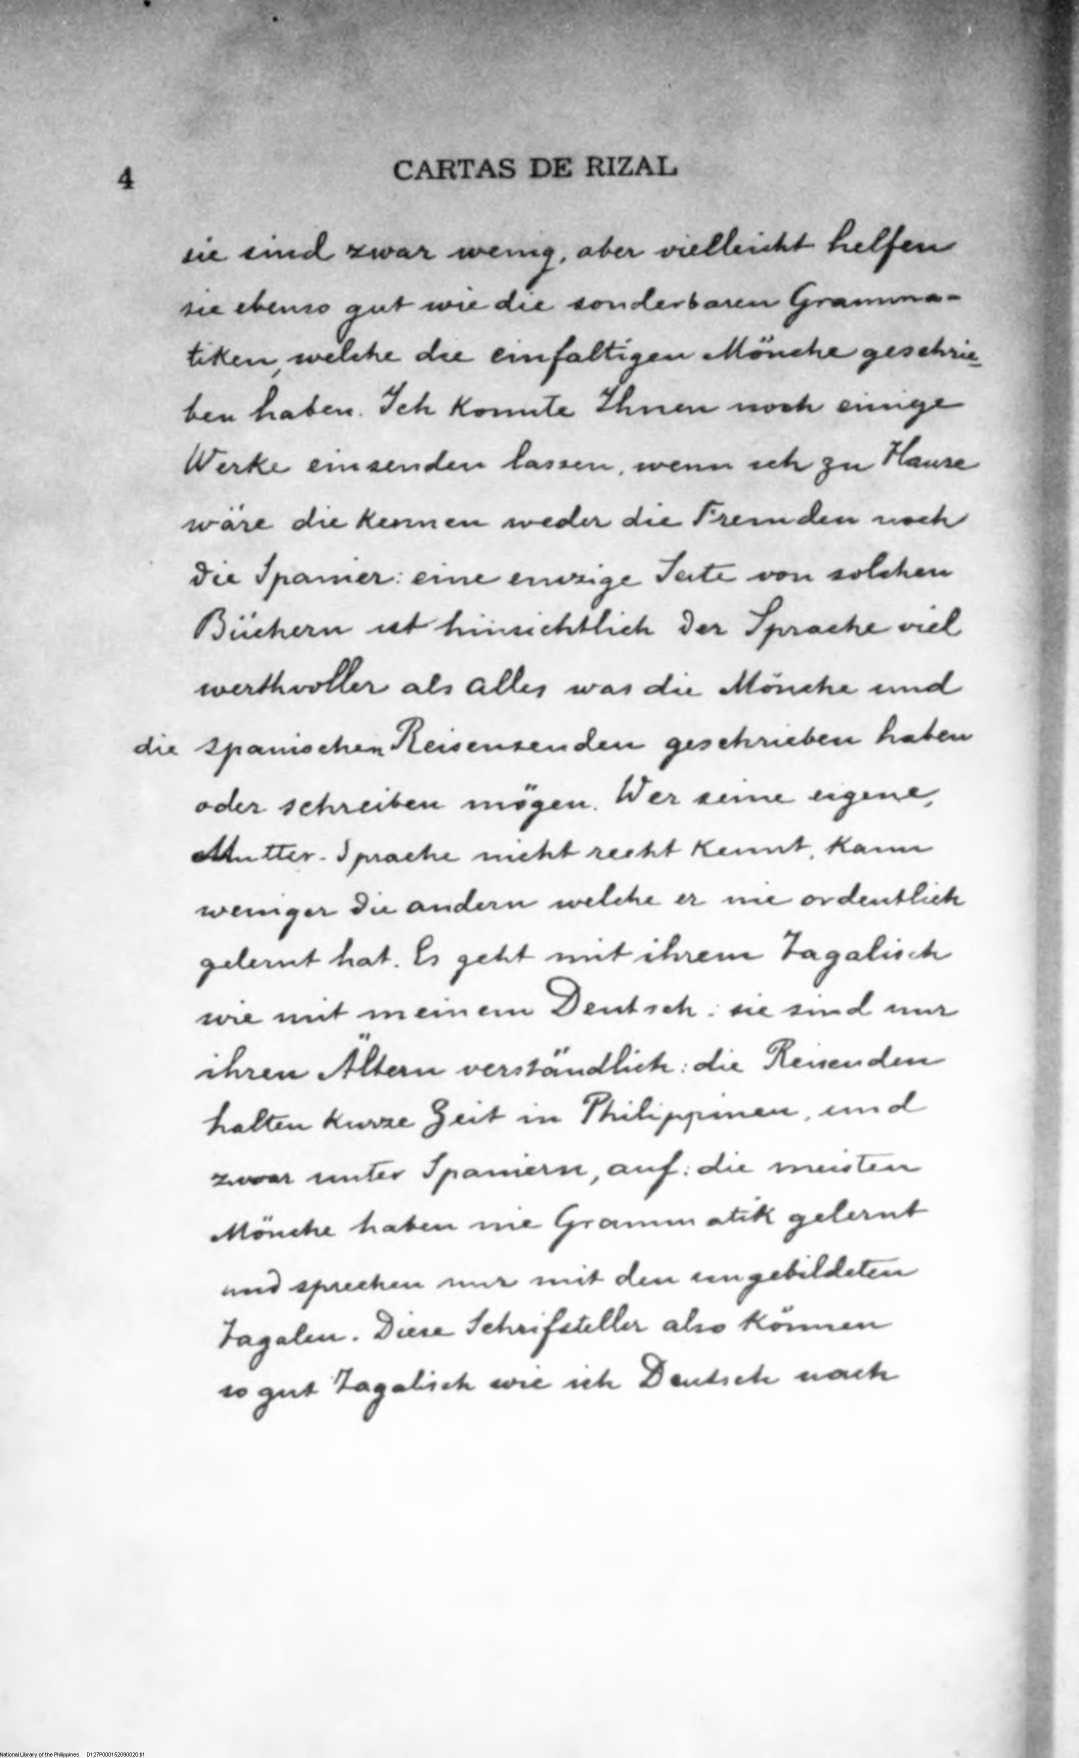 4
CARTAS DE RIZAL
sie sind zwar wenig, aber vielleicht helfen
sie ebenso gut wie die sonderbaren Gramma-
tiken, welche die einfaltigen Mönche geschrie-
ben haben. Ich konnte Ihnen noch einige
Werke einsenden lassen, wenn ich zu Hause
wäre die kennen weder die Fremden noch
die Spanier: eine einzige Seite von solchen
Büchern ist hinsichtlich der Sprache viel
werthvoller als alles was die Mönche und
die spanischen Reisensenden geschrieben haben
oder schreiben mögen. Wer seine eigene,
Mutter-Sprache nicht recht kennt, kann
weniger die andern welche er nie ordentlich
gelernt hat. Es geht mit ihrem Tagalisch
wie mit meinem Deutsch: sie sind nur
ihren Ältern verständlich: die Reisenden
halten kurze Zeit in Philippinen, und
zwar unter Spaniern, auf: die meisten
Mönche haben nie Grammatik gelernt
und sprechen nur mit den ungebildeten
Tagalen. Diese Schrifsteller also können
so gut Tagalisch wie ich Deutsch nach
National Library of the Philippines